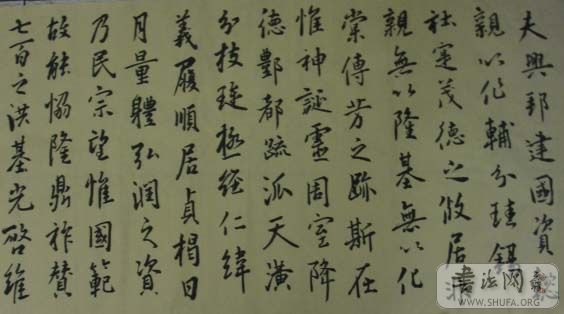 夫興邦建國資懿
親以作輔分珪錫
社寔茂德之攸居非
親無以隆基無以化
棠傳芳之跡斯在
惟神誕靈周室降
德酆都疏派天潢
分枝琁極經仁緯
義履順居貞揭日
月量體弘潤之資
乃民宗望惟國範
故能恊隆鼎祚贊
七百之洪基光啓維
书法网
WWW.SHUFA.ORG